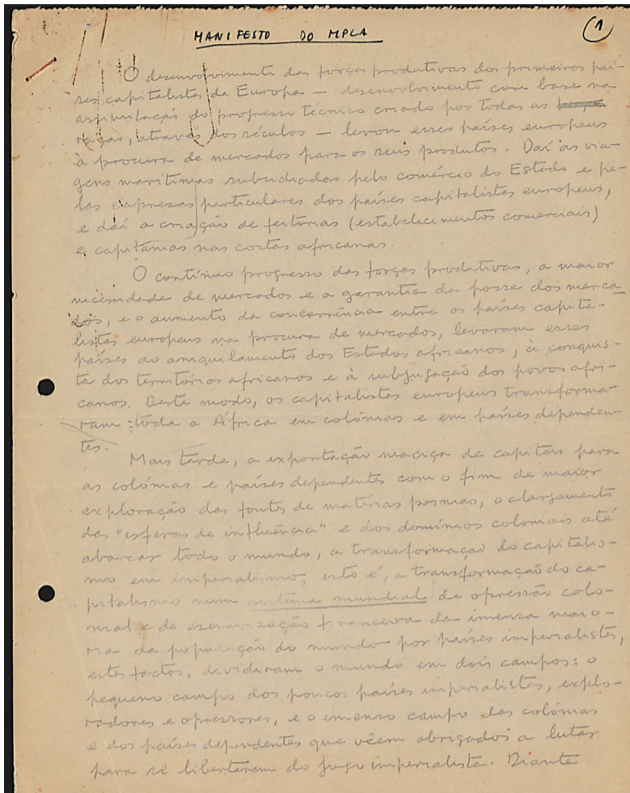 MANIFESTO DO MPLA
1
O desenvolvimento das forças produtivas dos primeiros paí-
ses capitalistas da Europa — desenvolvimento com base na
assimilação do progresso técnico criado por todas as
raças, através dos séculos — levou esses países europeus
à procura de mercados para os seus produtos. Daí as via-
gens marítimas subsidiadas pelo comércio do Estado e pe-
las empresas particulares dos países capitalistas europeus,
e daí a criação de feitorias (estabelecimentos comerciais)
e capitanias nas costas africanas.
O contínuo progresso das forças produtivas, a maior
necessidade de mercados e a garantia da posse dos merca-
dos, e o aumento da concorrência entre os países capita-
listas europeus na procura de mercados, levaram esses
países ao aniquilamento dos Estados africanos, à conquis-
ta dos territórios africanos e à subjugação dos povos afri-
canos. Deste modo, os capitalistas europeus transforma-
ram toda a África em colónias e em países dependen-
tes.
Mais tarde, a exportação maciça de capitais para
as colónias e países dependentes com o fim de maior
exploração das fontes de matérias primas, o alargamento
das "esferas de influência" e dos domínios coloniais até
abarcar todo o mundo, a transformação do capitalis-
mo em imperialismo, isto é, a transformação do ca-
pitalismo num sistema mundial de opressão colo-
nial e da escravização financeira da imensa maio-
ria da população do mundo por países imperialistas,
estes factos, dividiram o mundo em dois campos: o
pequeno campo dos poucos países imperialistas, explo-
radores e opressores, e o imenso campo das colónias
e dos países dependentes que vêem obrigados a lutar
para se libertarem do jugo imperialista. Diante